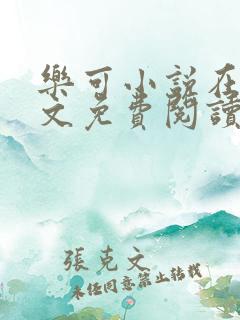 樂可小說在
文免費閱讀
張克文
未經同意禁止轉載